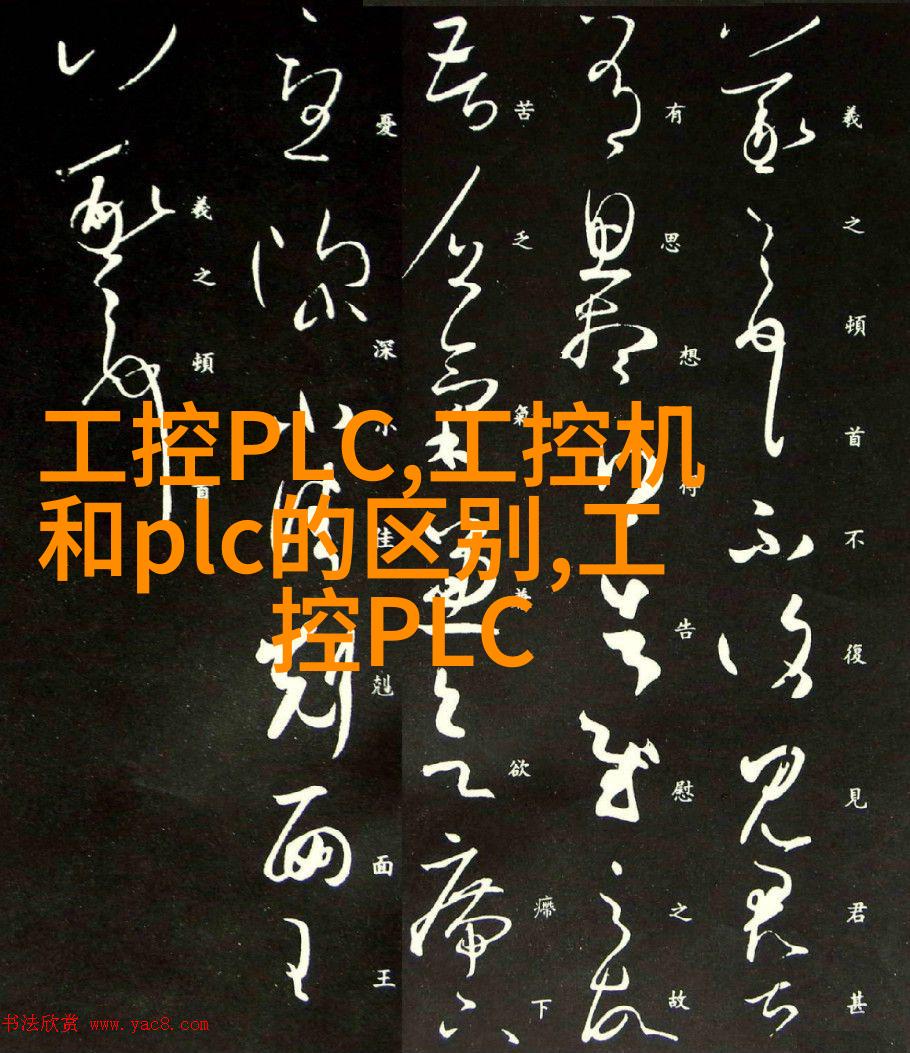 羲之頓首不復見君甚
有思想得告慰之故
苦乏氣善欲㿃下
憂深小佳剋面王
羲之頓首
工控PLC,工控机
和plc的区别,工
控PLC
书法欣赏 www.yac8.com